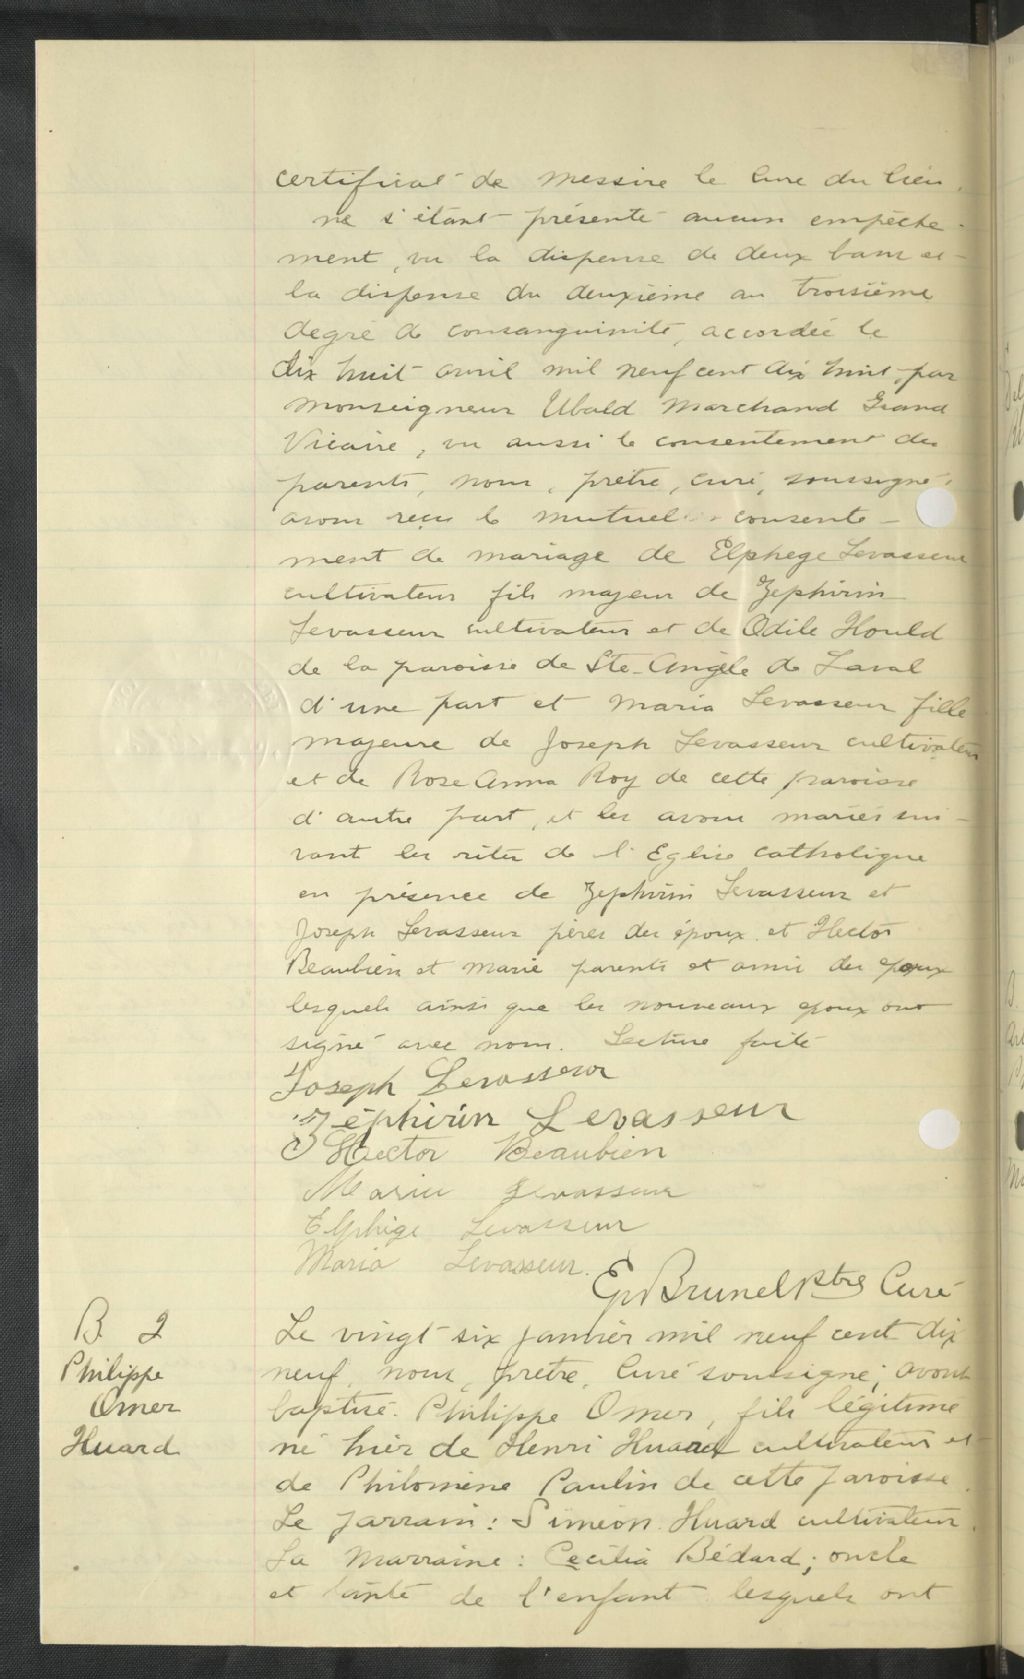 certificat de messire le Curé du lieu,
ne s'étant présenté aucun empêche-
ment, vu la dispense de deux bans et
la dispense du deuxième au troisième
degré de consanguinité, accordée le
dix huit avril mil neuf cent dix huit, par
Monseigneur Ubald Marchand Grand
Vicaire, vu aussi le consentement des
parents, nous, prêtre, curé, soussigné,
avons reçu le mutuel consente-
ment de mariage de Elphege Levasseur
cultivateur fils majeur de Zephirin
Levasseur cultivateur et de Odile Hould
de la paroisse de Ste-Angèle de Laval
d'une part et Maria Levasseur fille
majeure de Joseph Levasseur cultivateur
et de Rose Anna Roy de cette paroisse
d'autre part, et les avons mariés sui-
vant les rites de l'Eglise catholique
en présence de Zephirin Levasseur et
Joseph Levasseur pères des époux et Hector
Beaubien et Marie parents et amis des epoux
lesquels ainsi que les nouveaux epoux ont
signé avec nous. Lecture faite
Joseph Levasseur
Zéphirin Levasseur
Hector Beaubien
Marie Levasseur
Elphège Levasseur
Maria Levasseur.
Ep Brunel Ptre Curé
B. 2
Philippe
Omer
Huard
Le vingt six janvier mil neuf cent dix
neuf, nous, prêtre, Curé soussigné, avons
baptisé Philippe Omer, fils légitime
né hier de Henri Huard cultivateur et
de Philomène Paulin de cette paroisse.
Le parrain: Siméon Huard cultivateur.
La Marraine: Cecilia Bédard; oncle
et tante de l'enfant lesquels ont